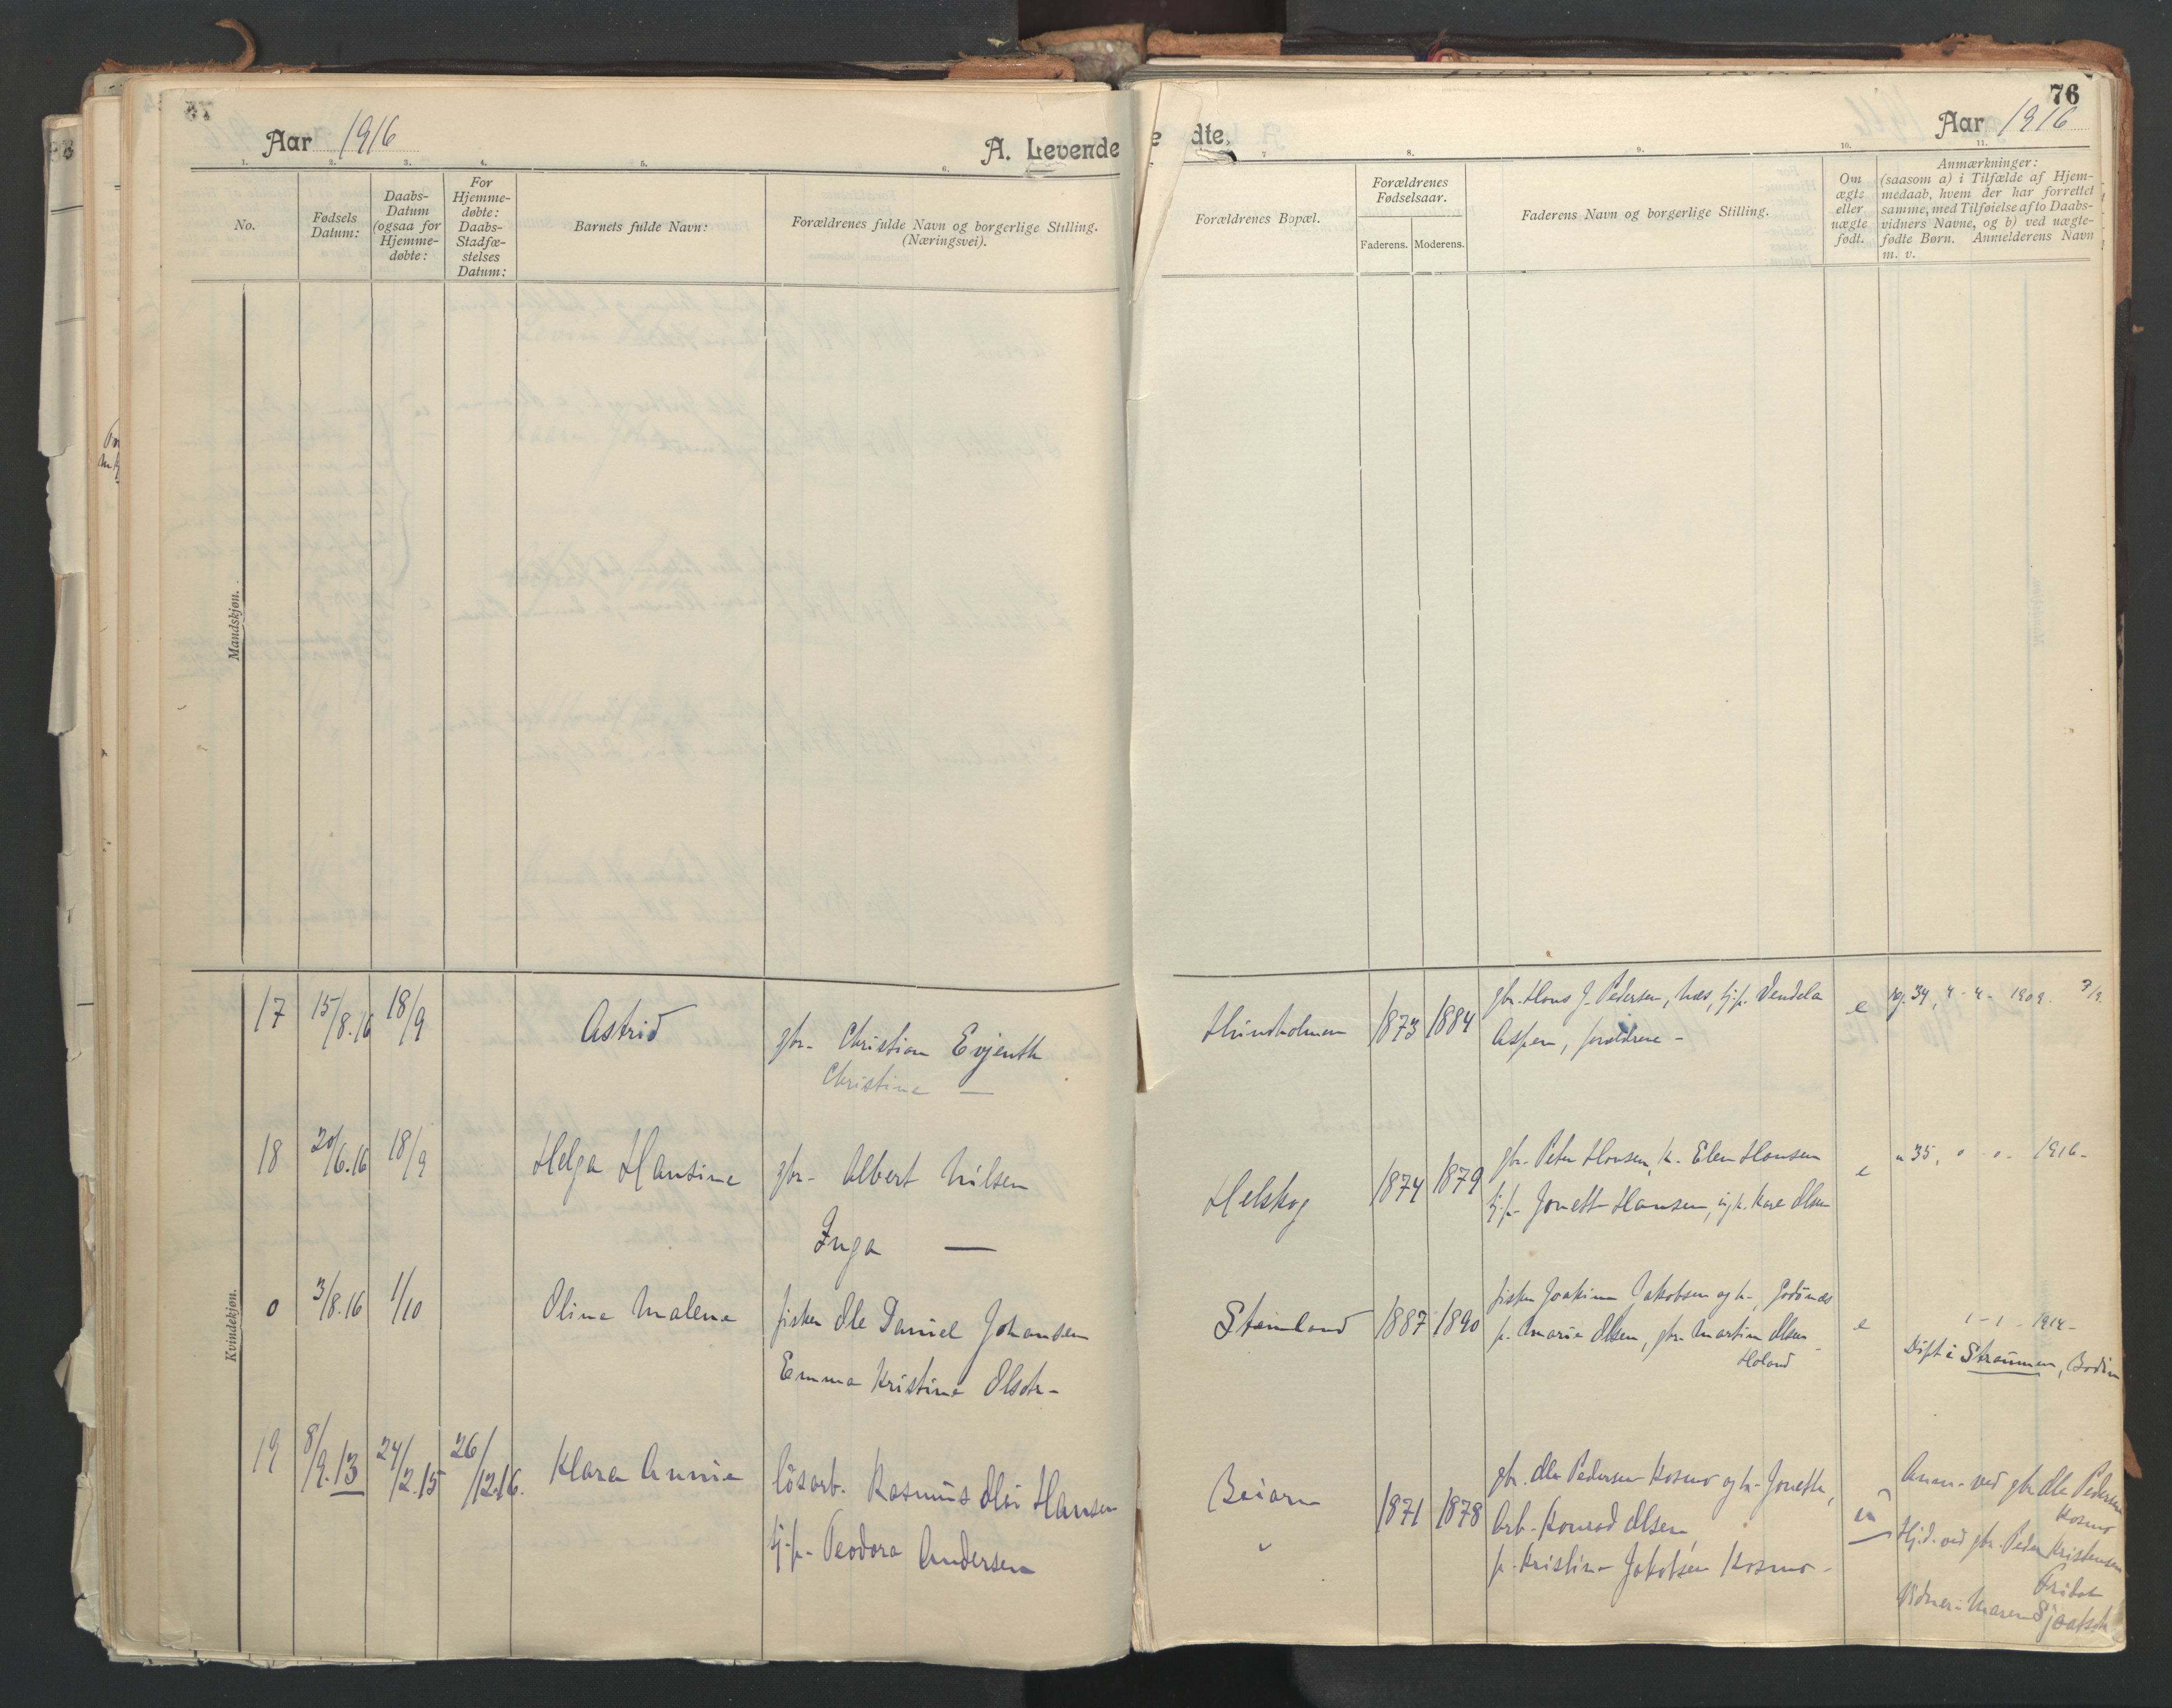 76
Aar 1916
A. Levende
dte.
Aar 1916
1. 2. 3. 4. 5. 6.
7 8. 9. 10. 11.
No.
Fødsels Datum:
Daabs-
Datum
(ogsaa for
Hjemme-
døbte:
For
Hjemme-
døbte:
Daabs-
Stadfæ-
stelses
Datum:
Barnets fulde Navn:
Forældrenes fulde Navn og borgerlige Stilling.
(Næringsvei).
Forældrenes Bopæl.
Forældrenes
Fødselsaar.
Faderens. Moderens.
Faderens Navn og borgerlige Stilling.
Om
ægte
eller
uægte
født.
Anmærkninger:
(saasom a) i Tilfælde af Hjem-
medaab, hvem der har forrettet
samme, med Tilføielse af to Daabs-
vidners Navne, og b) ved uægte-
fødte Børn. Anmelderens Navn
m. v.
Mandskjøn.
Kvindekjøn.
17 15/8.16 18/9 Astrid
gbr. Christian Evjenth
Christine —
Hundholmen 1873 1884
gbr. Hans J. Pedersen, Næs, tj.p. Vendela
Aspen, forældrene -
e
rg. 34, 4 - 4 - 1909. 3/9.
18 20/6.16 18/9 Helga Hansine
gbr. Albert Nilsen
Inga —
Helskog 1874 1879
gbr. Peter Hansen, k. Elen Hansen
tj.p. Jonette Hansen, Olsen
e
" 35, " " 1916-
0 3/8.16 1/10 Oline Malene
fisker Ole Daniel Johansen
Emma Kristine Olsdtr-
Steinland 1887 1890
fisker Joakim Jakobsen og h., Godönes
p. Marie Olsen, gbr. Martin Olsen
Holand
e
1 - 1 - 1914-
Døpt i Straumen, Bodin
19 8/9.13 24/2.15 26/12.16. Klara Annie
lösarb. Rasmus Olai Hansen
tj.p. Teodora Andersen
Beiarn
"
1871 1878
gbr. Ole Pedersen Kosmo og h. Jonette,
Arb. Konrad Olsen,
p. Kristine Jakobsen Kosmo -
u
Anm. ved gbr. Ole Pedersen
Kosmo
Hj.d. ved gbr. Peder Kristensen
Vidner: Maren